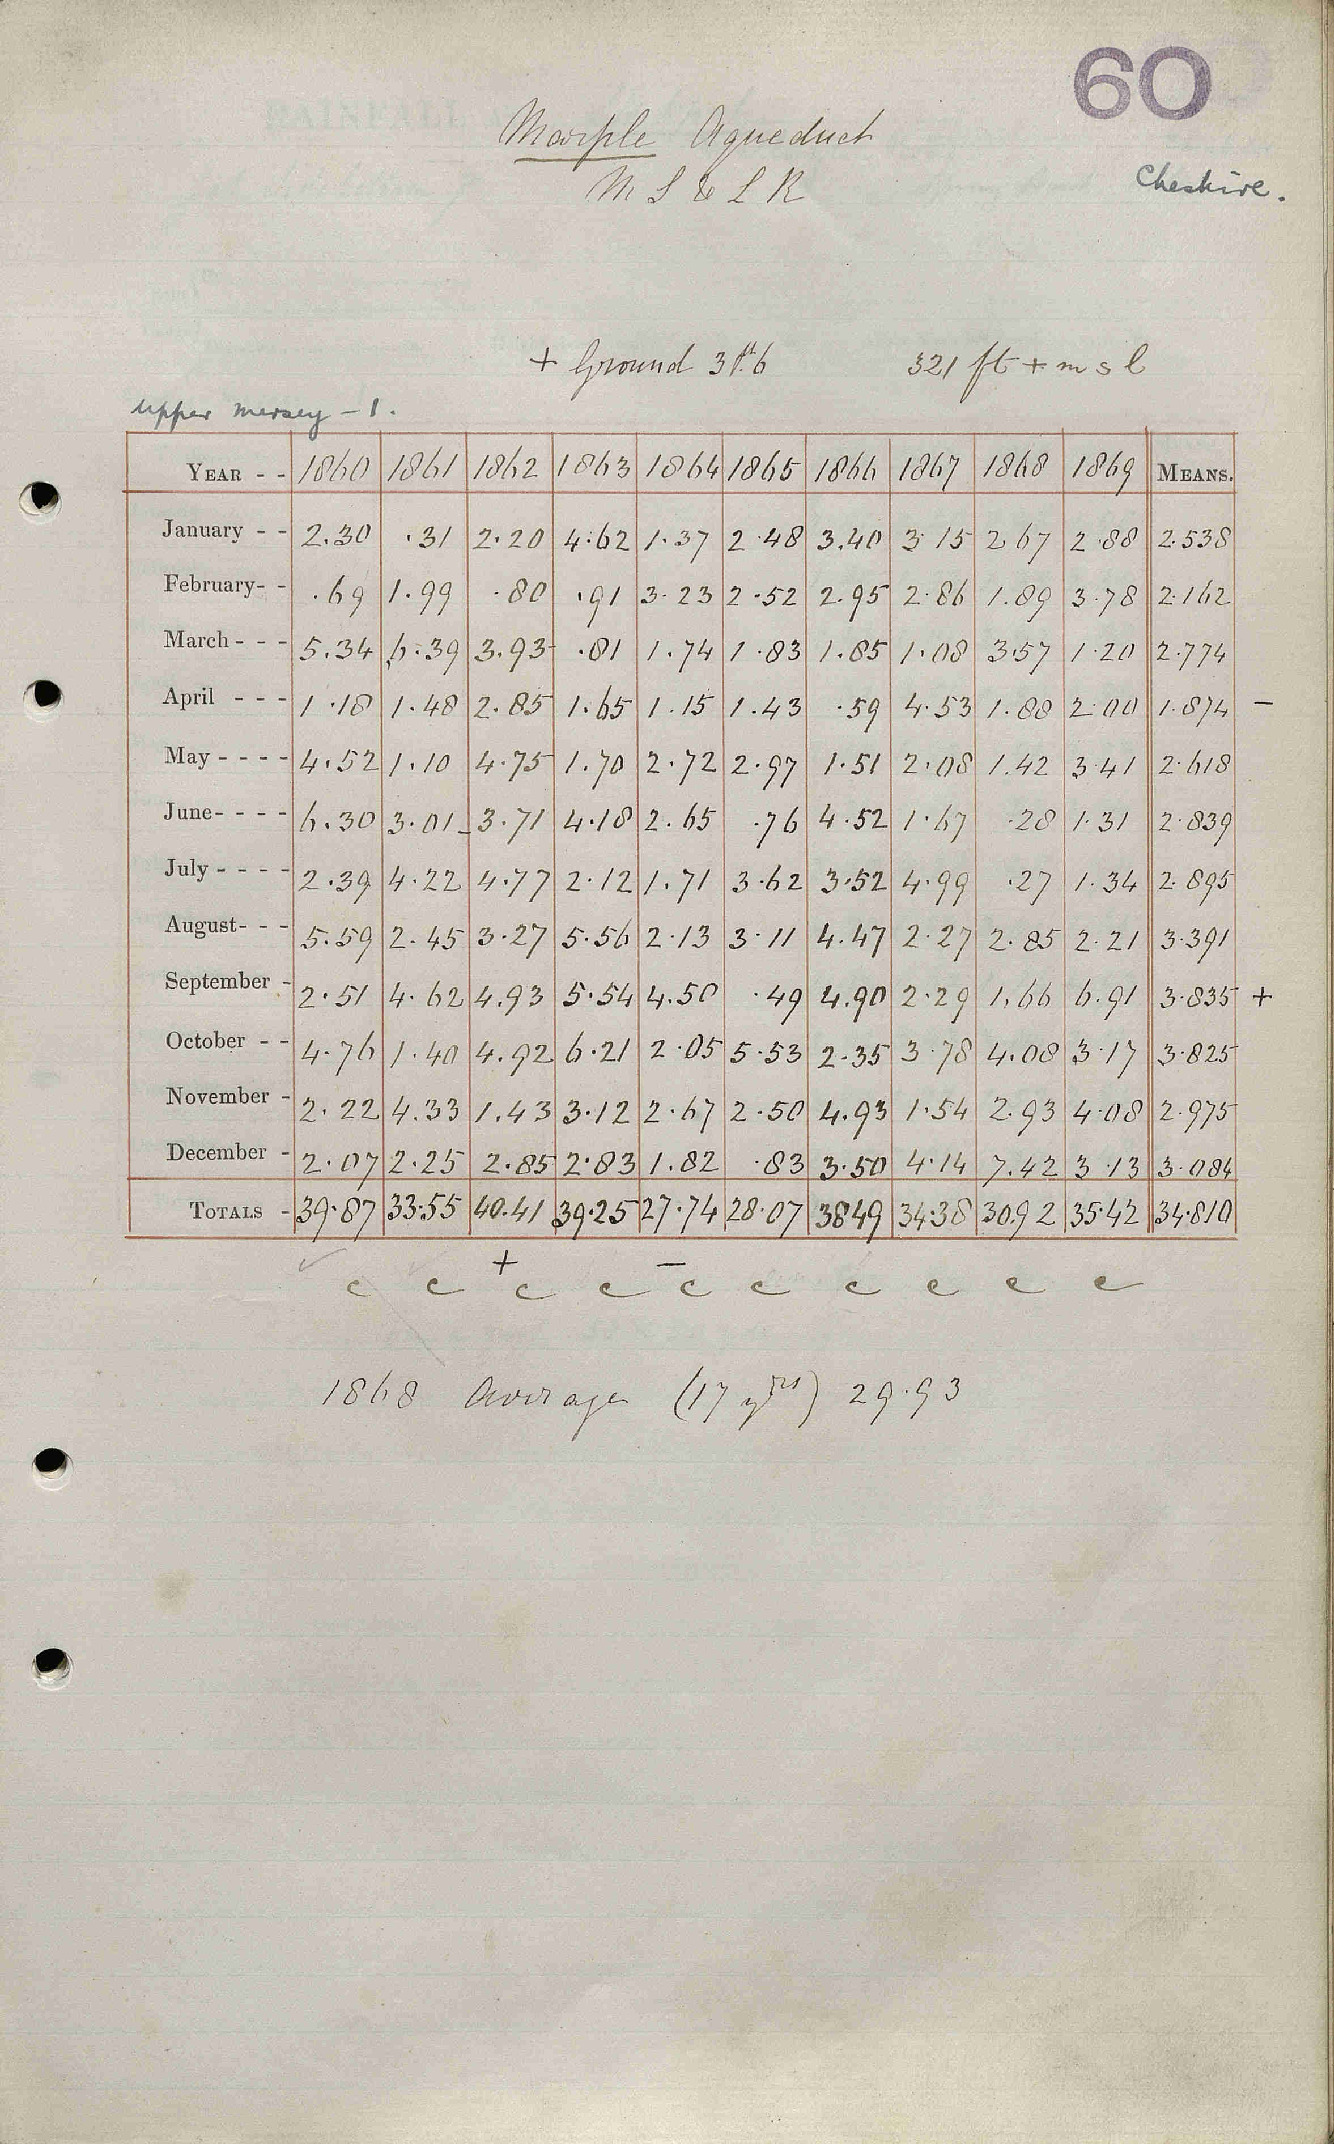 60
Marple Aqueduct
M S & L R
Cheshire.
+ Ground 3ft 6 321 ft + m s l
Upper Mersey - 1.
YEAR - - 1860 1861 1862 1863 1864 1865 1866 1867 1868 1869 MEANS.
January - - 2.30 .31 2.20 4.62 1.37 2.48 3.40 3.15 2.67 2.88 2.538
February - - .69 1.99 .80 .91 3.23 2.52 2.95 2.86 1.89 3.78 2.162
March - - - 5.34 6.39 3.93 .81 1.74 1.83 1.85 1.08 3.57 1.20 2.774
April - - - 1.18 1.48 2.85 1.65 1.15 1.43 .59 4.53 1.88 2.00 1.874 -
May - - - - 4.52 1.10 4.75 1.70 2.72 2.97 1.51 2.08 1.42 3.41 2.618
June - - - - 6.30 3.01 3.71 4.18 2.65 .76 4.52 1.67 .28 1.31 2.839
July - - - - 2.39 4.22 4.77 2.12 1.71 3.62 3.52 4.99 .27 1.34 2.895
August - - - 5.59 2.45 3.27 5.56 2.13 3.11 4.47 2.27 2.85 2.21 3.391
September - 2.51 4.62 4.93 5.54 4.50 .49 4.90 2.29 1.66 6.91 3.835 +
October - - 4.76 1.40 4.92 6.21 2.05 5.53 2.35 3.78 4.08 3.17 3.825
November - 2.22 4.33 1.43 3.12 2.67 2.50 4.93 1.54 2.93 4.08 2.975
December - 2.07 2.25 2.85 2.83 1.82 .83 3.50 4.14 7.42 3.13 3.084
TOTALS - 39.87 33.55 40.41 39.25 27.74 28.07 38.49 34.38 30.92 35.42 34.810
+ -
c c c c c c c c c c
1868 Average (17 yrs) 29.93